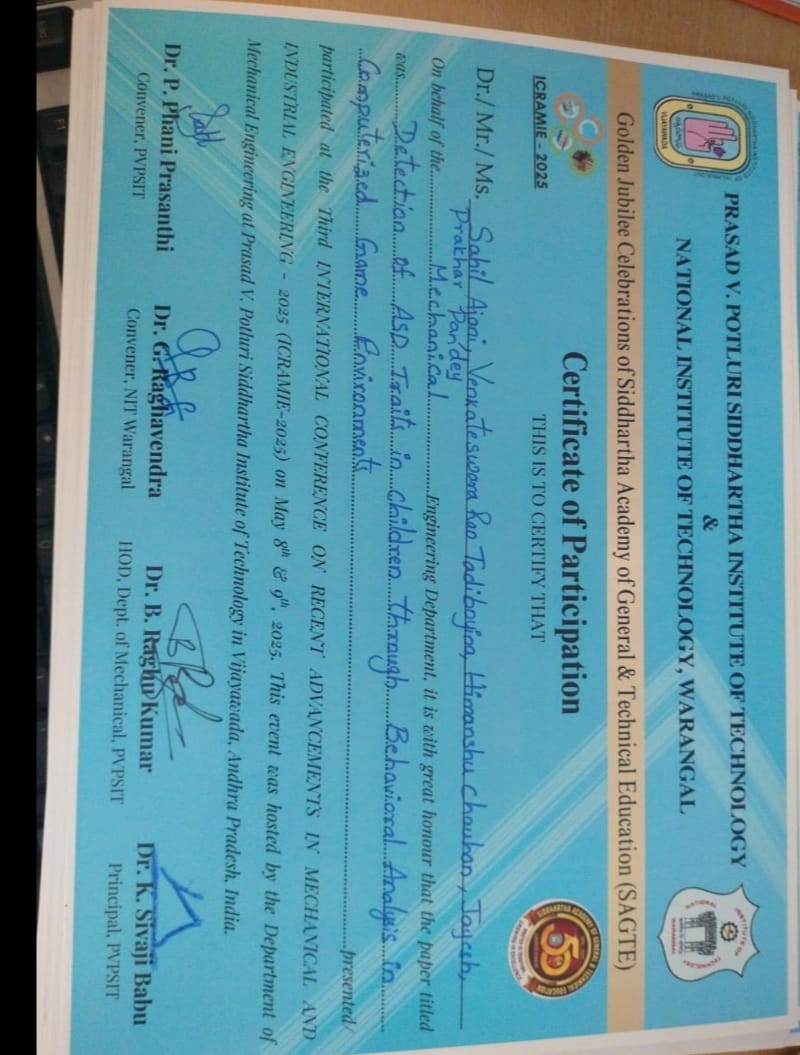 PRASAD V. POTLURI SIDDHARTHA INSTITUTE OF TECHNOLOGY
&
NATIONAL INSTITUTE OF TECHNOLOGY, WARANGAL
Golden Jubilee Celebrations of Siddhartha Academy of General & Technical Education (SAGTE)
ICRAMIE - 2025
Certificate of Participation
THIS IS TO CERTIFY THAT
Dr./ Mr./ Ms. Sahil Ajani Venkateswara Rao Tadiboyina, Himanshu Chauhan, Jayesh,
Prakhar Pandey
On behalf of the Mechanical Engineering Department, it is with great honour that the paper titled
was Detection of ASD Traits in Children through Behavioral Analysis in
Computerized Game Environments presented
participated at the Third INTERNATIONAL CONFERENCE ON RECENT ADVANCEMENTS IN MECHANICAL AND
INDUSTRIAL ENGINEERING - 2025 (ICRAMIE-2025) on May 8th & 9th, 2025. This event was hosted by the Department of
Mechanical Engineering at Prasad V. Potluri Siddhartha Institute of Technology in Vijayawada, Andhra Pradesh, India.
Dr. P. Phani Prasanthi
Convener, PVPSIT
Dr. G. Raghavendra
Convener, NIT Warangal
Dr. B. Raghu Kumar
HOD, Dept. of Mechanical, PVPSIT
Dr. K. Sivaji Babu
Principal, PVPSIT